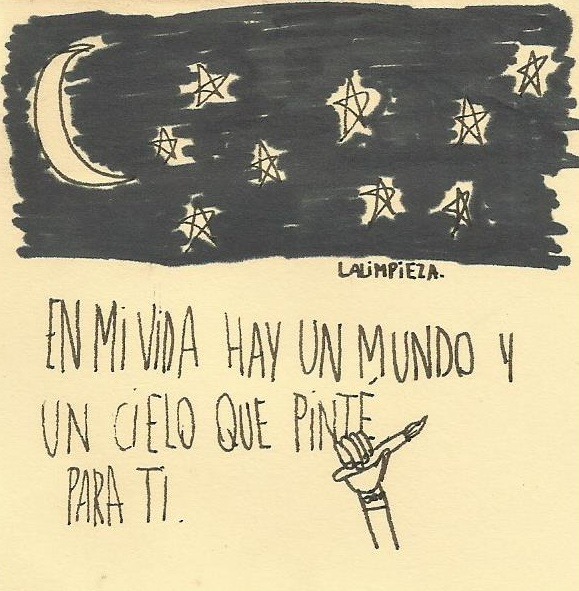 LALiMPiEZA.
EN Mi ViDA HAY UN MUNDO Y
UN CiELO QUE PiNTÉ
PARA Ti.